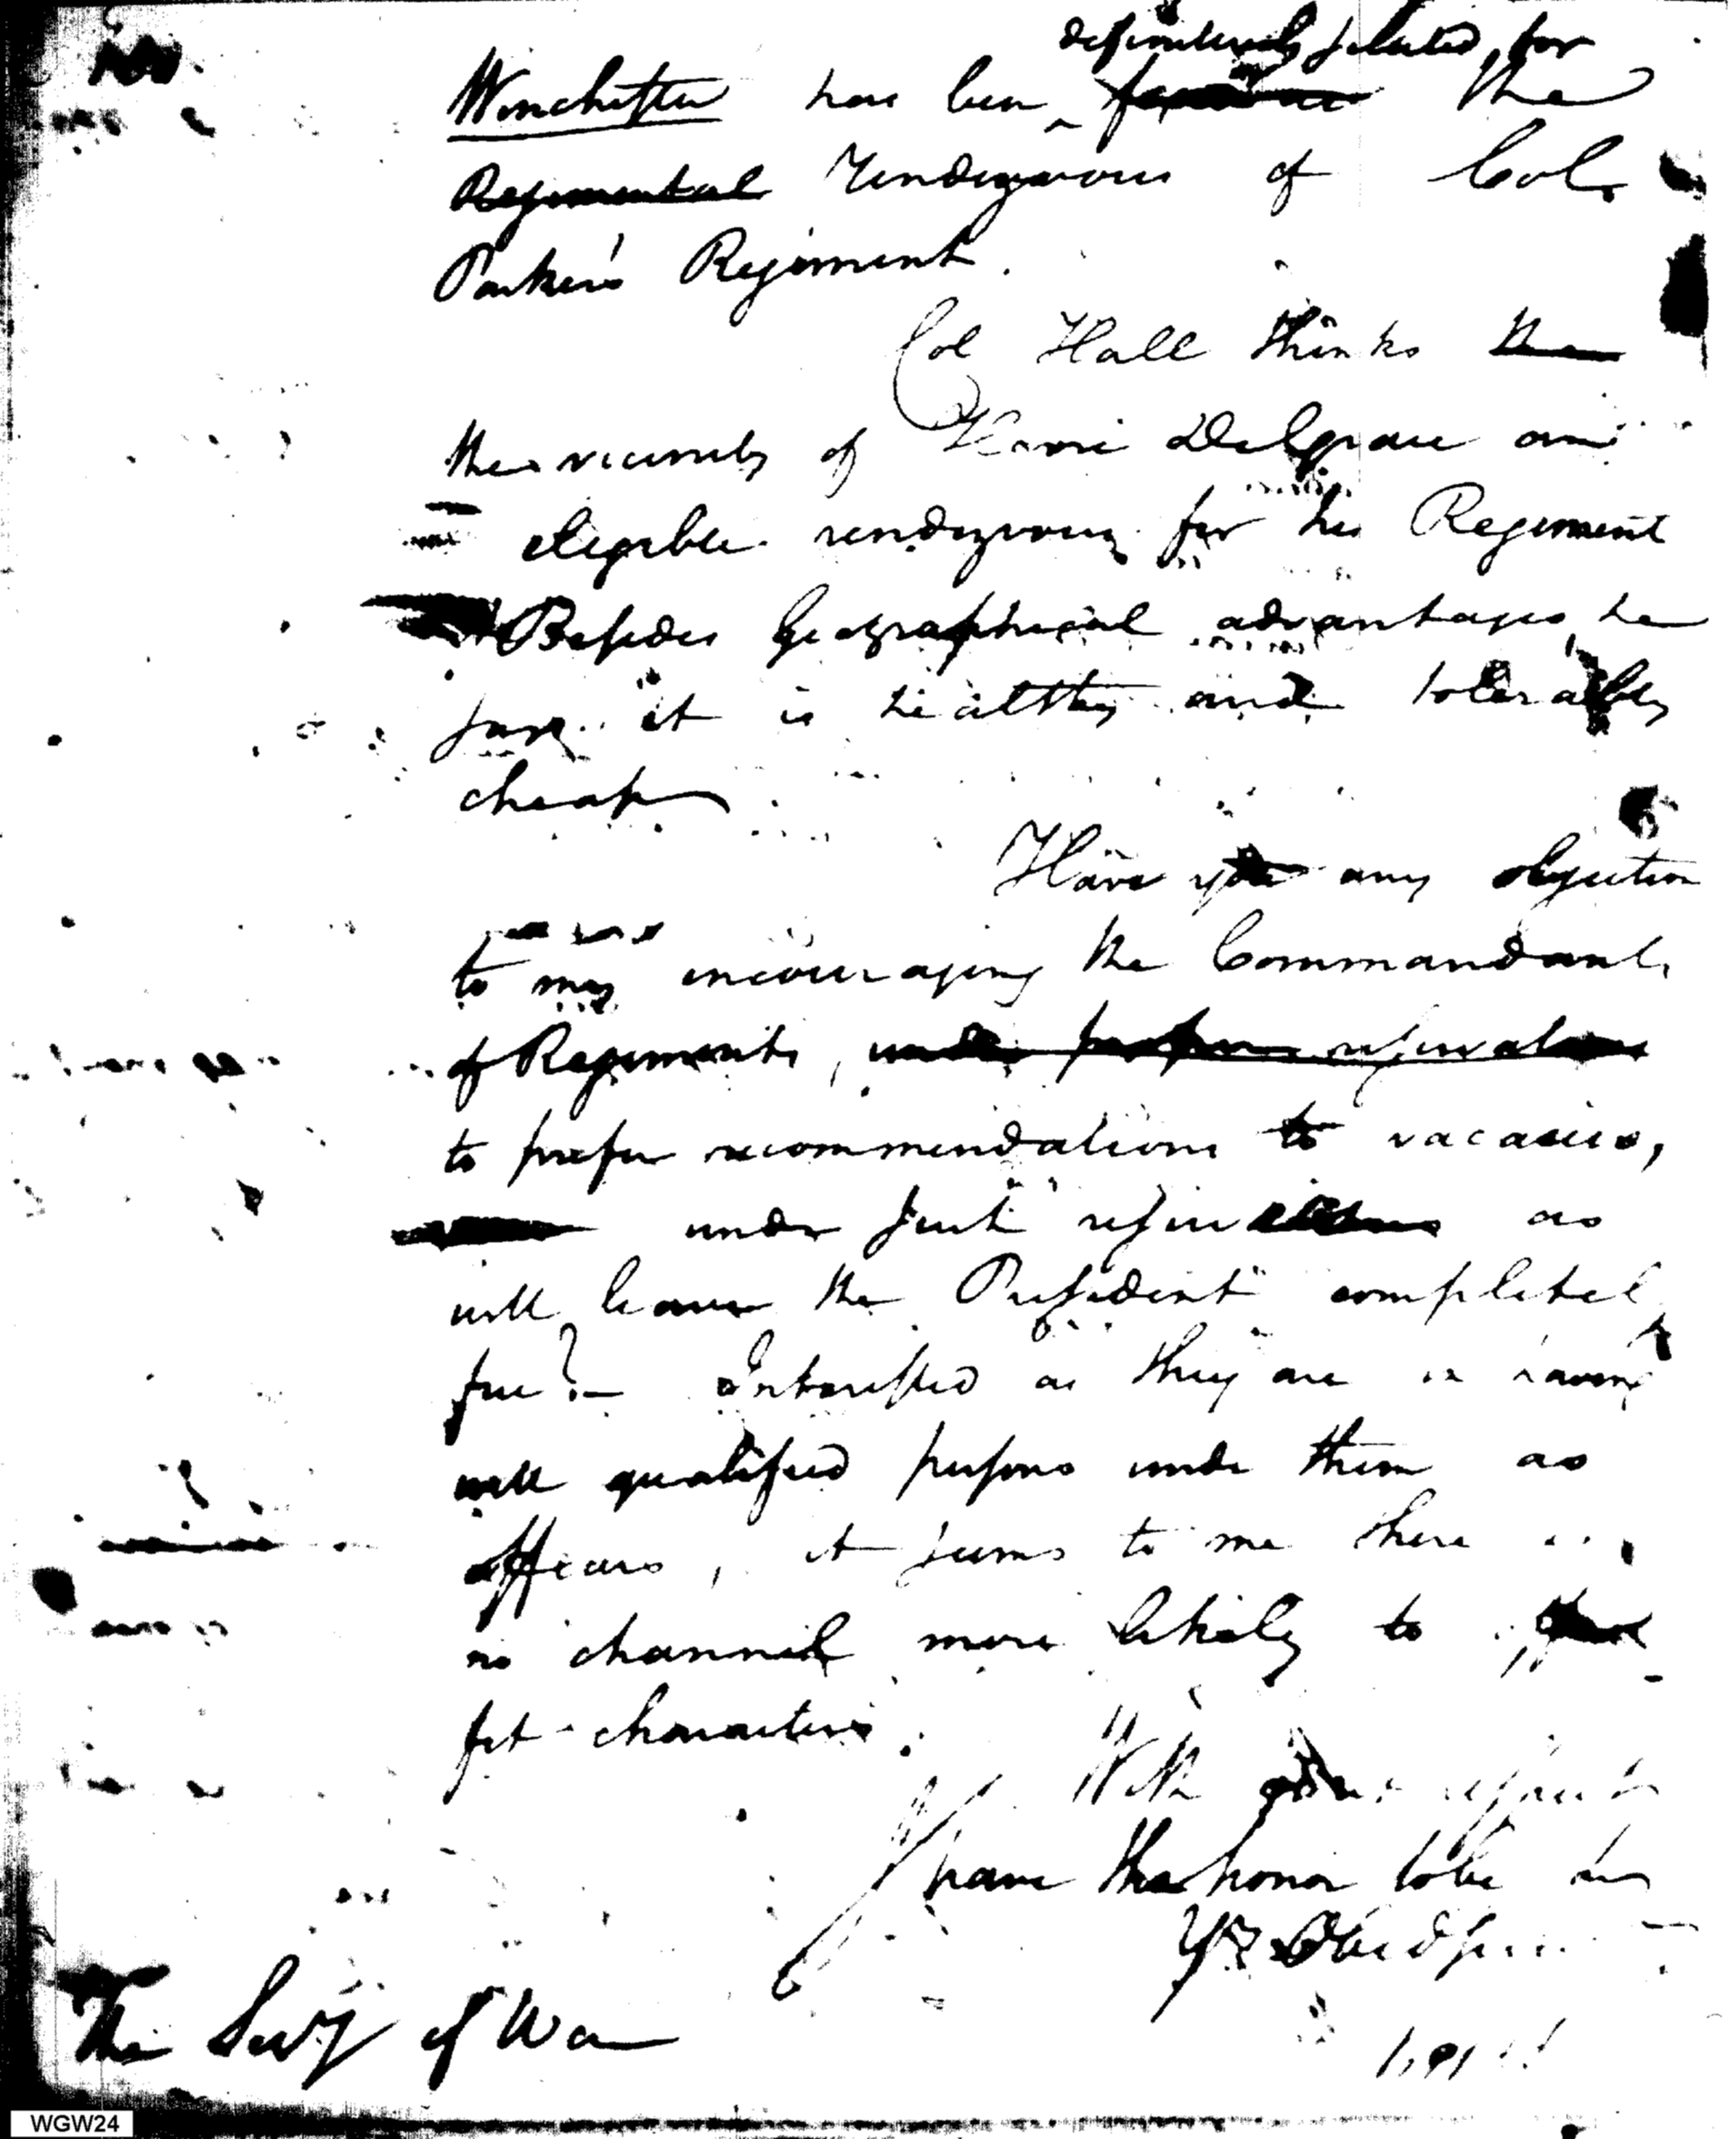 definitively selected for
Winchester has been the
Regimental rendezvous of Col.
Parker's Regiment.
Col Hall thinks the
the vicinity of Havre De Grace an
eligible rendezvous for his Regiment
Besides Geographical advantages he
says it is healthy and tolerably
cheap.
Have you any objection
to my encouraging the Commandants
of Regiments, under proper reservations
to prefer recommendations to vacacies,
under such reservations as
will leave the President completely
free? – Interested as they are in having
well qualified persons under them as
officers, it seems to me there is
no channel more likely to
fit characters.
With respect
I have the honor to be
Yr Obed ser
The Secy of War
WGW24